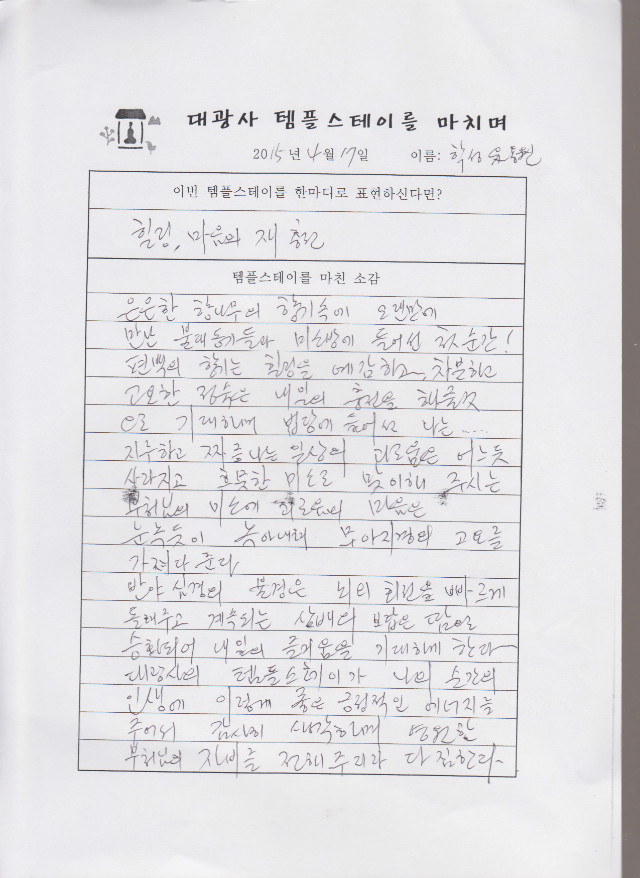 대광사 템플스테이를 마치며
2015년 4월 17일 이름:
이번 템플스테이를 한마디로 표현하신다면?
힐링, 마음의 재 충전
템플스테이를 마친 소감
은은한 향나무의 향기속에 오랜만에
만난 불대동기들과 미소방에 들어선 첫순간!
편백의 향기는 힐링을 예감하고~, 차분하고
고요한 정숙은 내일의 충전을 해줄것
으로 기대하며 법당에 들어선 나는....
지루하고 짜증나는 일상의 괴로움은 어느듯
사라지고 흐뭇한 미소로 맞이해 주시는
부처님의 미소에 괴로움의 마음은
눈녹듯이 녹아내려 무아지경의 고요를
가져다 준다
반야 심경의 불경은 뇌의 회전을 빠르게
돌려주고 계속되는 삼배의 보답은 땀으로
승화되어 내일의 즐거움을 기대하게 한다~
대광사의 템플스테이가 나의 순간의
인생에 이렇게 좋은 긍정적인 에너지를
주어서 감사히 생각하며 영원한
부처님의 자비를 전해 주리라 다짐한다~